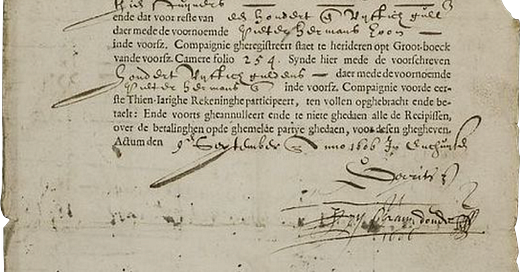 ende dat voor reste van een hondert & vijftich guld
daer mede de voornoemde Pieter Hermans soon
inde voorsz. Compaignie gheregistreert staet te herideren opt Groot-boeck
vande voorsz. Camere folio 254. Synde hier mede de voorschreven
hondert vijftich guldens daer mede de voornoemde
Pieter Hermans inde voorsz. Compagnie voorde eer-
ste Thien-Iarighe Rekeninghe participeert, ten vollen opghebracht ende be-
taelt: Ende voorts gheannulleert ende te niete ghedaen alle de Recipissen,
over de betalinghen opde ghemelde partye ghedaen, voor desen ghegheven.
Actum den 9en September Anno 1606
1606